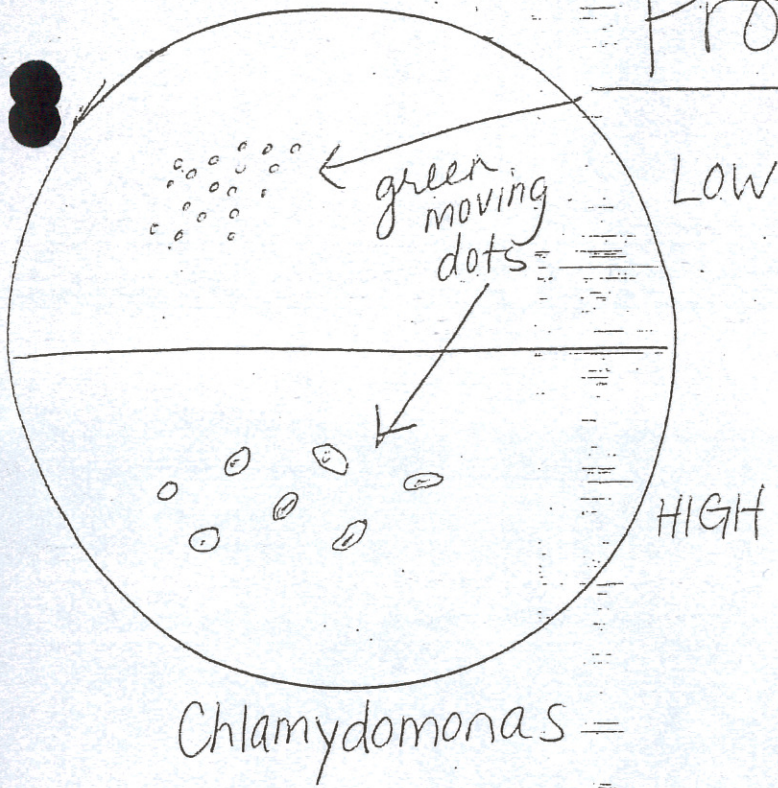 Pro
LOW
green
moving
dots
HIGH
Chlamydomonas